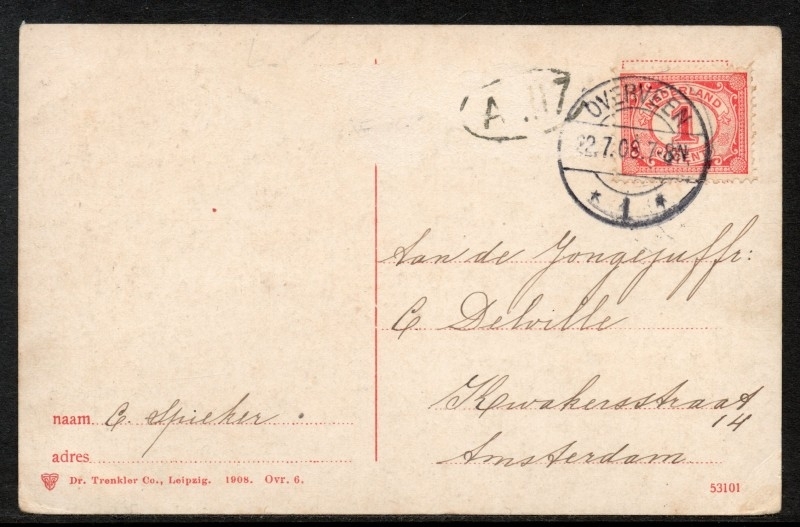 NEDERLAND
1
CENT
OVERVEEN
22.7.08.7-8N
* 1 *
Aan de Jongejuffr:
C Delville
Kwakersstraat
14
Amsterdam
naam C. Spieker.
adres
Dr. Trenkler Co., Leipzig. 1908. Ovr. 6.
53101